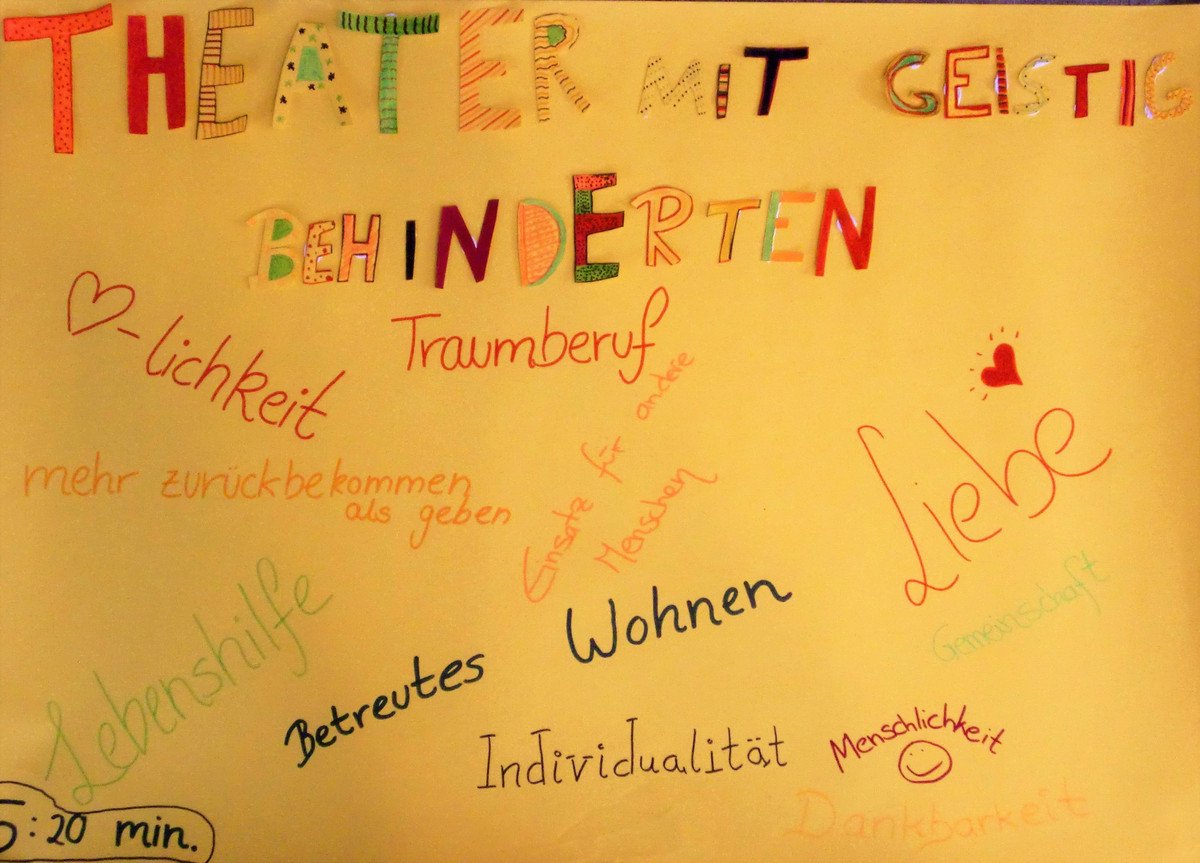 THEATER MIT GEISTIG
BEHINDERTEN
♡-lichkeit
Traumberuf
mehr zurückbekommen
als geben
Einsatz für andere
Menschen
Liebe
Lebenshilfe
Betreutes Wohnen
Gemeinschaft
Individualität
Menschlichkeit
Dankbarkeit
5:20 min.